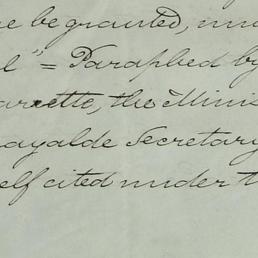 be granted,
" = Paraphed by
the Minis
ayalde Secretary
elf cited under t